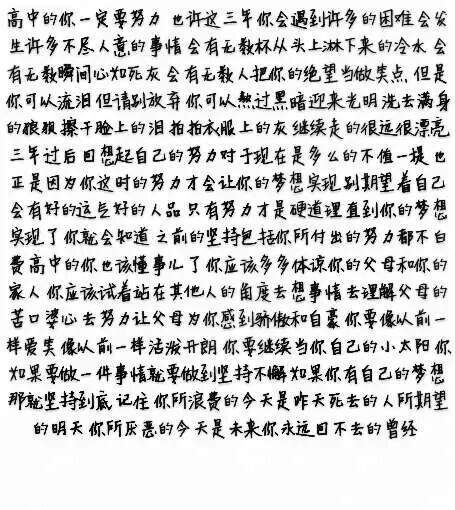 高中的你一定要努力 也许这三年你会遇到许多的困难会发
生许多不尽人意的事情会有无数杯从头上淋下来的冷水会
有无数瞬间心如死灰会有无数人把你的绝望当做笑点但是
你可以流泪但请别放弃你可以熬过黑暗迎来光明洗去满身
的狼狈擦干脸上的泪拍拍衣服上的灰继续走的很远很漂亮
三年过后回想起自己的努力对于现在是多么的不值一提也
正是因为你这时的努力才会让你的梦想实现别期望着自己
会有好的这与好的人品只有努力才是硬道理直到你的梦想
实现了你就会知道之前的坚持包括你所付出的努力都不白
费高中的你也该懂事儿了你应该多多体谅你的父母和你的
家人你应该试着站在其他人的角度去想事情去理解父母的
苦口婆心去努力让父母为你感到骄傲和自豪你要像以前一
样爱笑像以前一样活泼开朗你要继续当你自己的小太阳你
如果要做一件事情就要做到坚持不懈如果你有自己的梦想
那就坚持到底记住你所浪费的今天是昨天死去的人所期望
的明天你所厌恶的今天是未来你永远回不去的曾经